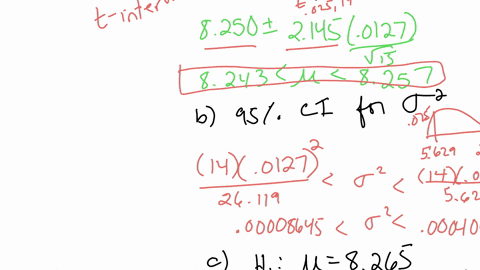 t-inter
t.025,14
8.250 ± 2.145 (.0127)
√15
8.243 < μ < 8.257
b) 95% CI for σ²
.025
5.629
(14)(.0127)² < σ² < (14)(.0
26.119 5.62
.00008645 < σ² < .00040
c) H₁: μ = 8.265